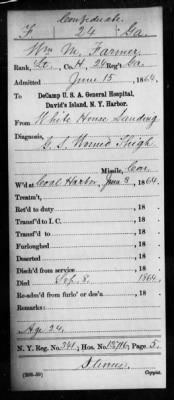 Confederate
F 24 Ga.
Wm M. Farmer
Rank, Lt. Co. H, 24 Reg't Ga.
Admitted June 15, 1864.
To DeCamp U. S. A. General Hospital,
David's Island, N. Y. Harbor.
From White House Landing
Diagnosis, G. S. Wound Thigh
Missile, Con.
W'd at Coal Harbor, June 2, 1864.
Treatm't,
Ret'd to duty , 18 .
Transf'd to I. C. , 18 .
Transf'd to , 18 .
Furloughed , 18 .
Deserted , 18 .
Disch'd from service , 18 .
Died Sep. 8. , 1864.
Re-adm'd from furlo' or des'n , 18 .
Remarks:
Age 24,
N. Y. Reg. No. 341; Hos. No. ; Page, 5.
Copyist.